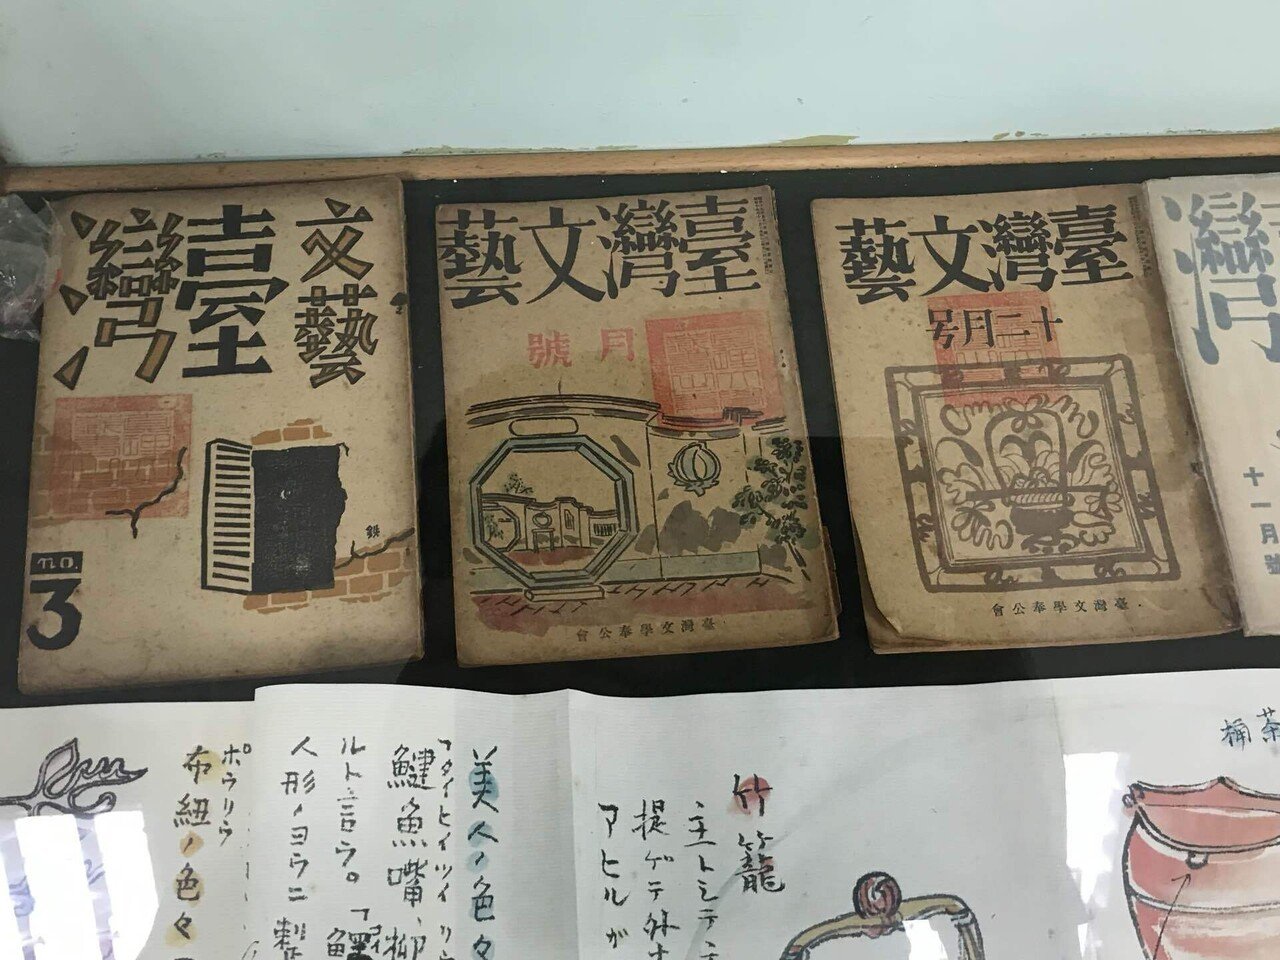 文藝
臺灣
no.
3
臺灣文藝
月號
臺灣文學奉公會
臺灣文藝
十二月号
臺灣文學奉公會
灣
十一月號
美人ノ色々
鰎魚嘴、柳
ルト言ウ。
人形ノヨウニ製
ポウリウ
布紐ノ色々
竹籠
主トシテ
提ゲテ外
アヒルガ
茶
桶